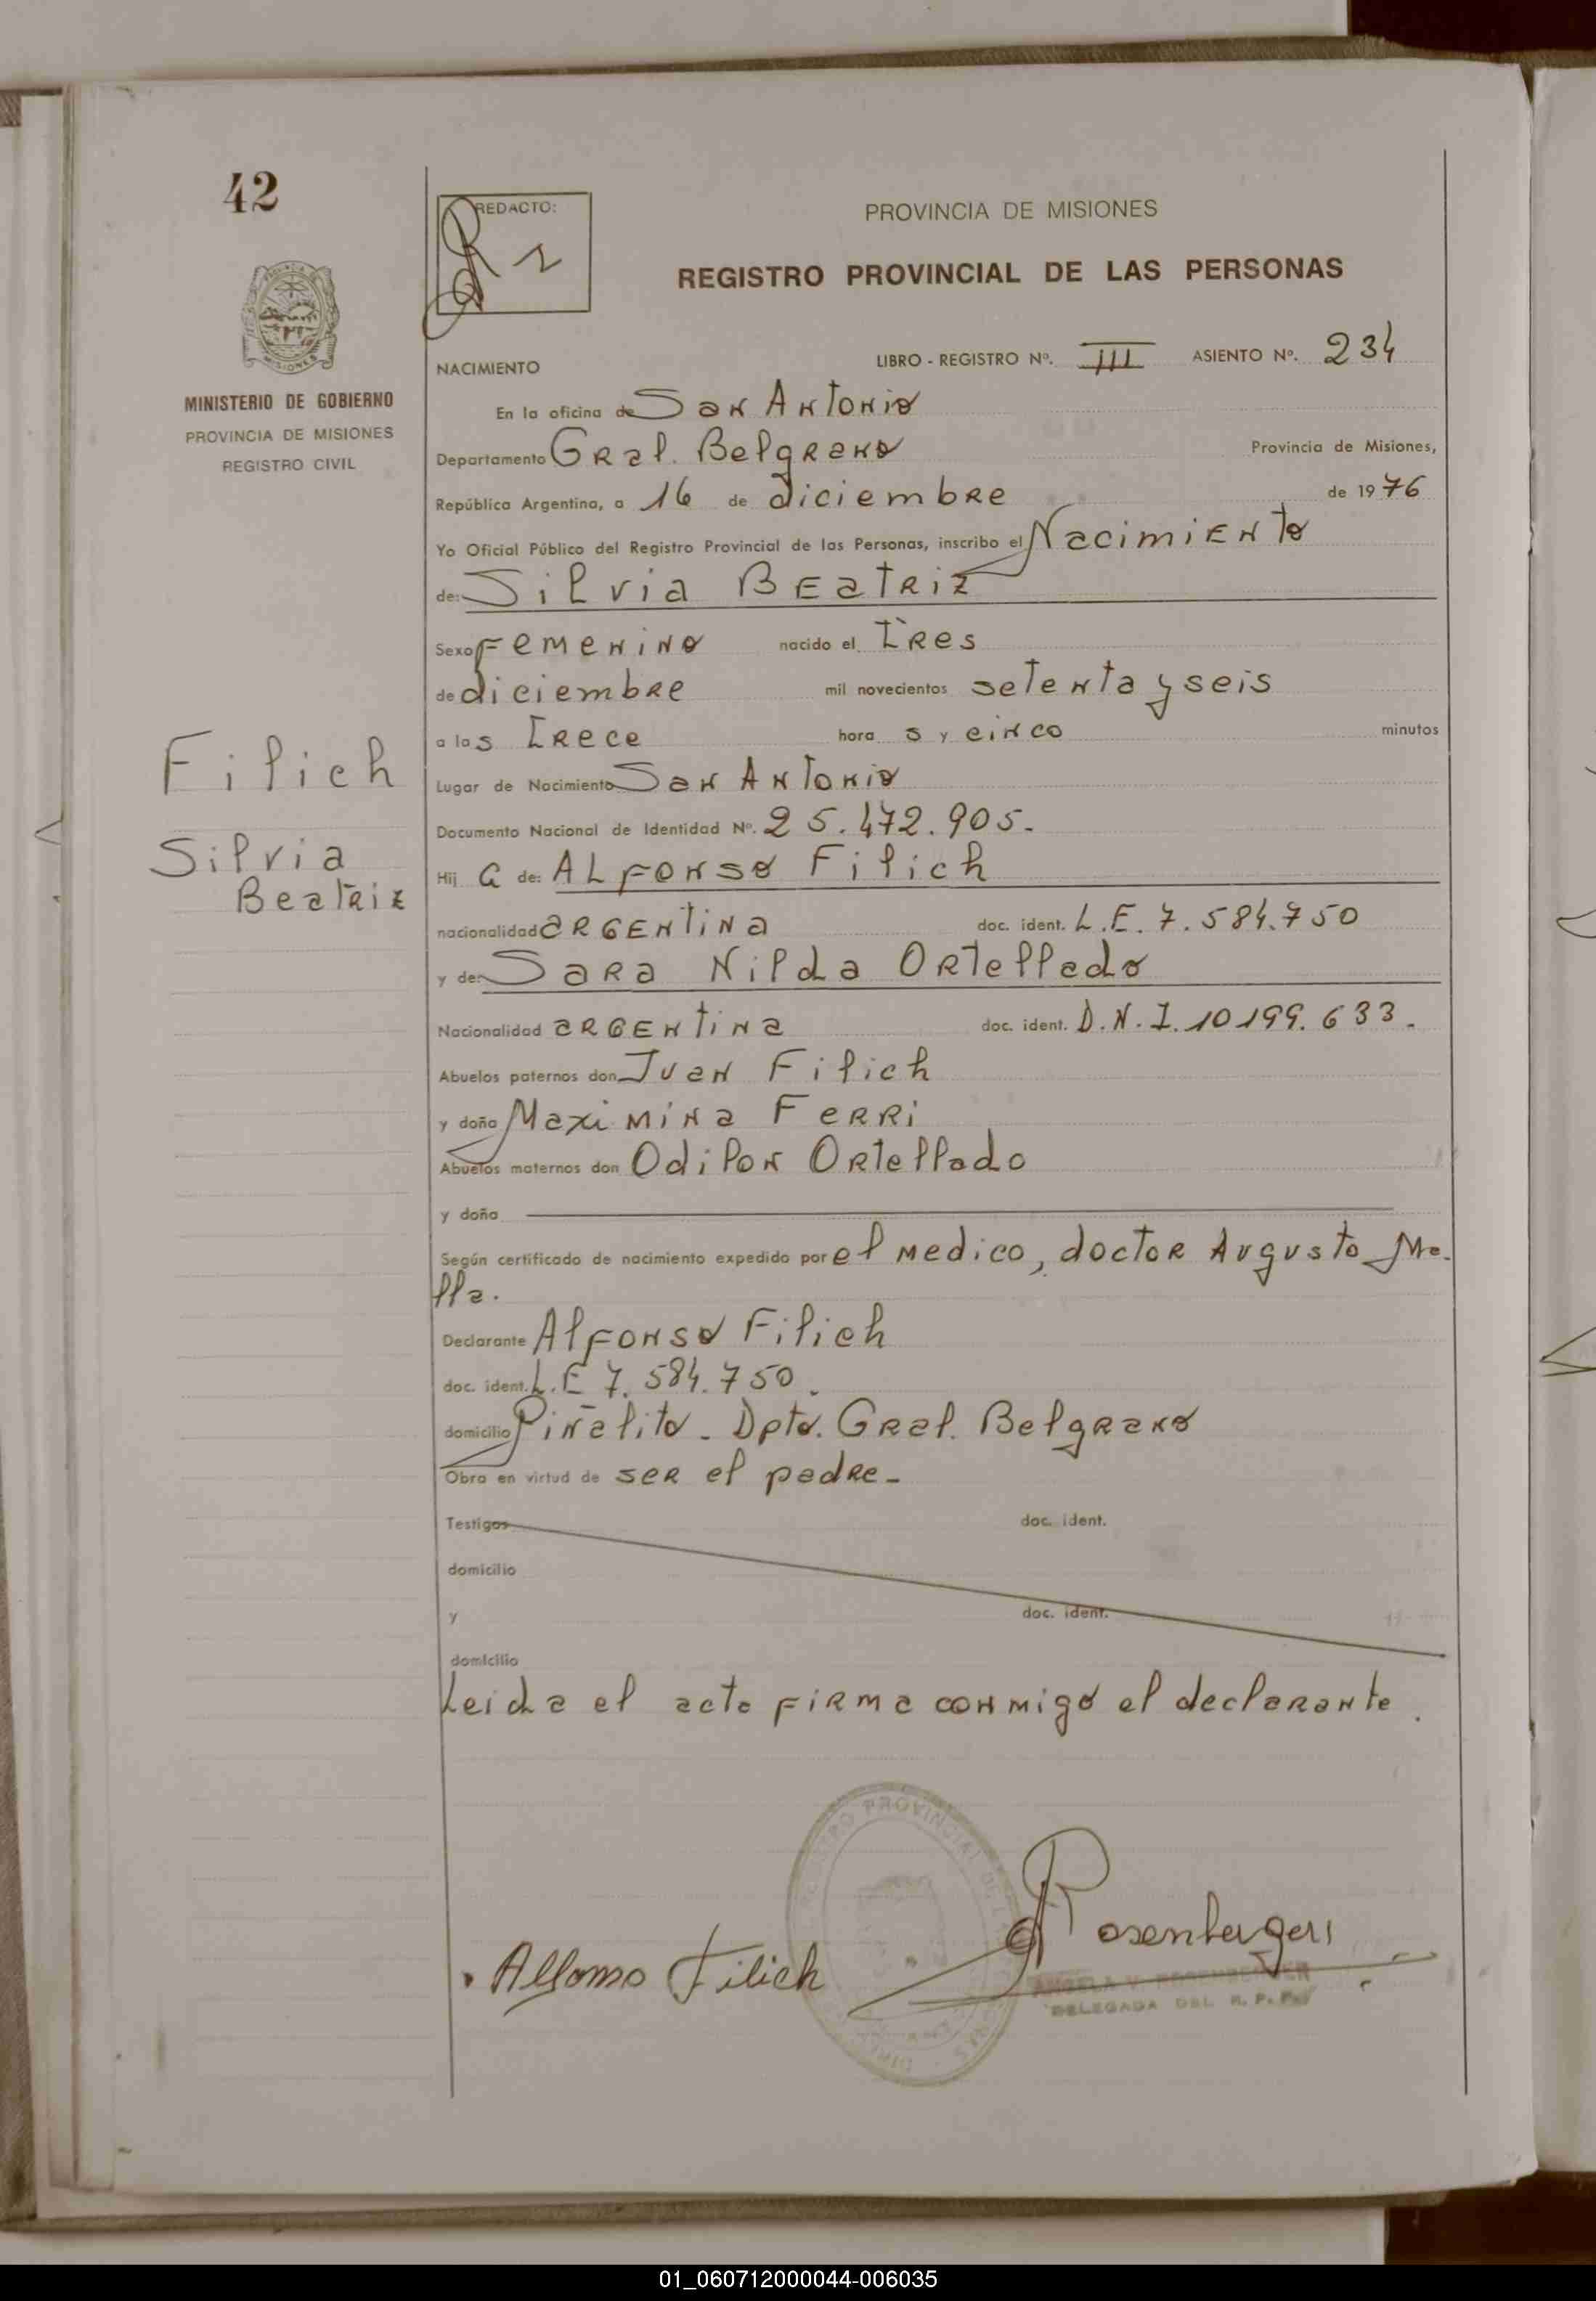 42
REDACTO:
PROVINCIA DE MISIONES
REGISTRO PROVINCIAL DE LAS PERSONAS
MINISTERIO DE GOBIERNO
PROVINCIA DE MISIONES
REGISTRO CIVIL
NACIMIENTO LIBRO - REGISTRO Nº. III ASIENTO Nº. 234
En la oficina de San Antonio
Departamento Gral. Belgrano Provincia de Misiones,
República Argentina, a 16 de diciembre de 1976
Yo Oficial Público del Registro Provincial de las Personas, inscribo el Nacimiento
de: Silvia Beatriz
Sexo Femenino nacido el Tres
de diciembre mil novecientos setenta y seis
a las Trece hora s y cinco minutos
Filich
Silvia
Beatriz
Lugar de Nacimiento San Antonio
Documento Nacional de Identidad Nº. 25.472.905.
Hij a de: Alfonso Filich
nacionalidad argentina doc. ident. L.E. 7.584.750
y de: Sara Nilda Ortellado
Nacionalidad argentina doc. ident. D.N.I. 10199.633.
Abuelos paternos don Juan Filich
y doña Maximina Ferri
Abuelos maternos don Odilon Ortellado
y doña
Según certificado de nacimiento expedido por el medico, doctor Augusto Me-
lla.
Declarante Alfonso Filich
doc. ident. L.E 7.584.750.
domicilio Piñalito - Dpto. Gral. Belgrano
Obra en virtud de ser el padre-
Testigos doc. ident.
domicilio
y doc. ident.
domicilio
Leida el acta firma conmigo el declarante.
Alfonso Filich
Rosenberger
ANGELA V. ROSENBERGER
DELEGADA DEL R. P. P.
01_060712000044-006035